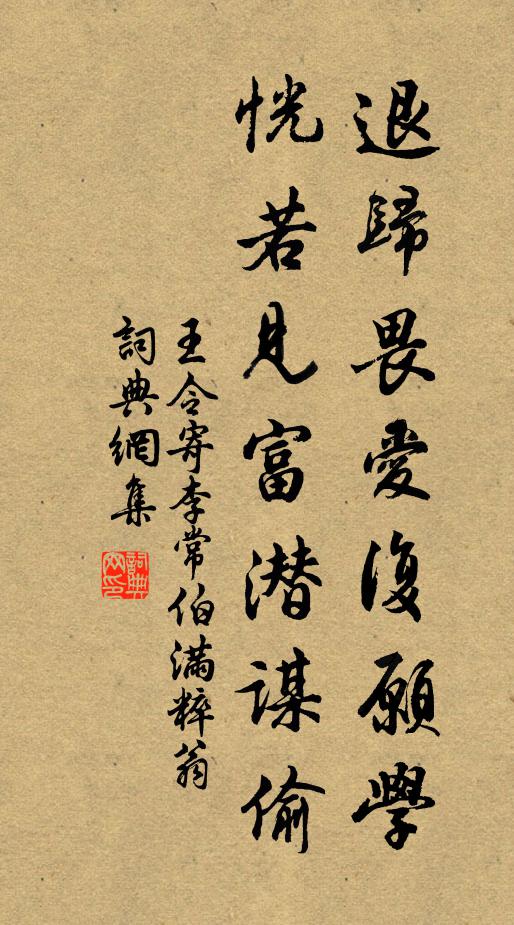 退歸畏愛復願學
恍若見富潜謀偷
王令寄李常伯滿粹翁
詞典網集
詞典网印